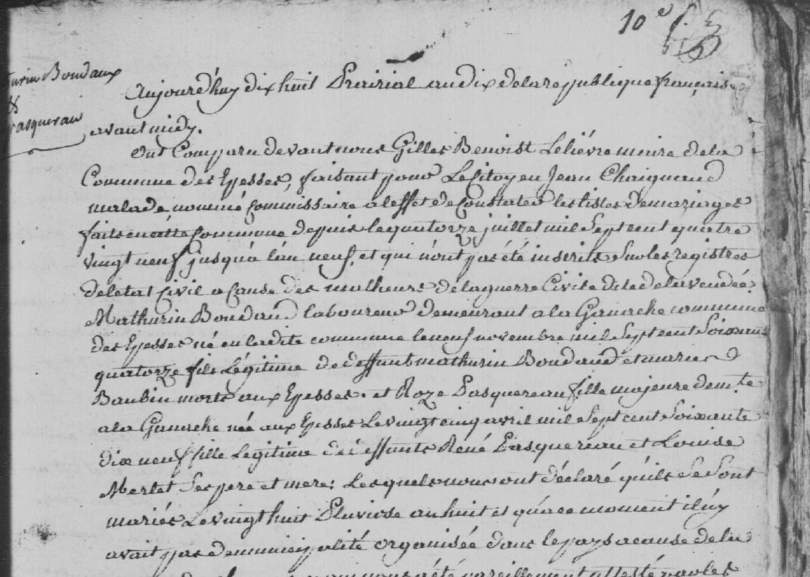 10e
turin Boudaux
&
asquerau
Aujourd'huy dix huit Prairial an dix de la république française
avant midy.
Ont Comparu devant nous Gilles Benoist Lelièvre maire de la
Commune des Epesses, faisant pour Le Citoyen Jean Chaignaud
malade, nommé Commissaire a l'effet de Constater les listes de mariages
faits en cette Commune depuis le quatorze juillet mil Sept cent quatre
vingt neuf jusqu'à l'an neuf, et qui n'ont pas été inscrits Sur les registres
de l'état Civil a Cause des malheurs de la guerre Civile de la vendée.
Mathurin Boudaud laboureur demeurant a la Ganache commune
des Epesses né en ladite commune le neuf novembre mil Sept cent Soixante
quatorze fils Légitime de deffunt mathurin Boudaud et marie
Baubin morts aux Epesses. et Roze Pasquereau fille majeure demte
a la Ganache née aux Epesses Le vingt cinq avril mil Sept cent Soixante
dix neuf fille Légitime de deffunts René Pasquereau et Louise
Mertet Ses pere et mere; Lesquels nous ont déclaré qu'ils Se Sont
mariés Le vingt huit Pluviose an huit et qu'a ce moment il n'y
avait pas de municipalité organisée dans le pays a cause de la
qui nous a été pareillement attesté par les